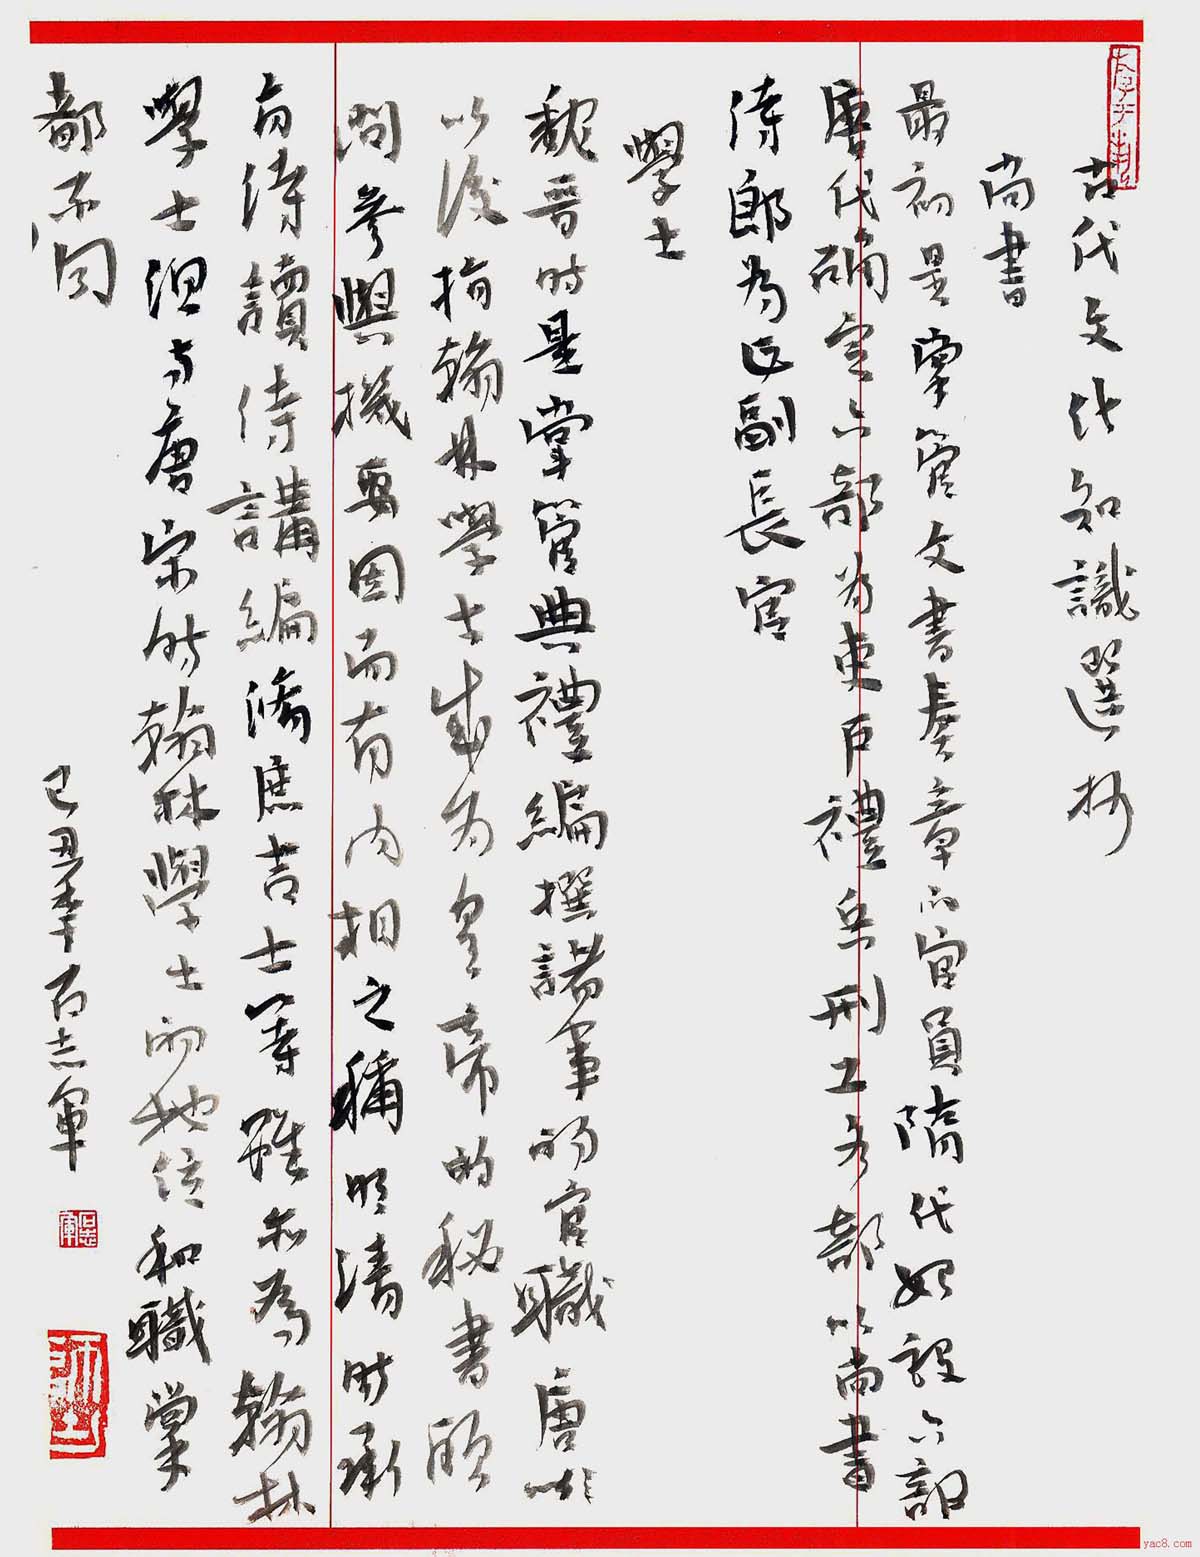 古代文化知識選抄
尚書
最初是掌管文書奏章的官員隋代始設六部
唐代确定六部为吏户禮兵刑工各部以尚書
侍郎为正副長官
學士
魏晋時是掌管典禮編撰諸事的官職唐以
以後指翰林學士成为皇帝的秘書顧
問參與機要因而有内相之稱明清時承
有侍讀侍講編脩庶吉士等雖亦為翰林
學士但与唐宋時翰林學士的地位和職掌
都不同
己丑秊石志軍
石志軍
yac8.com